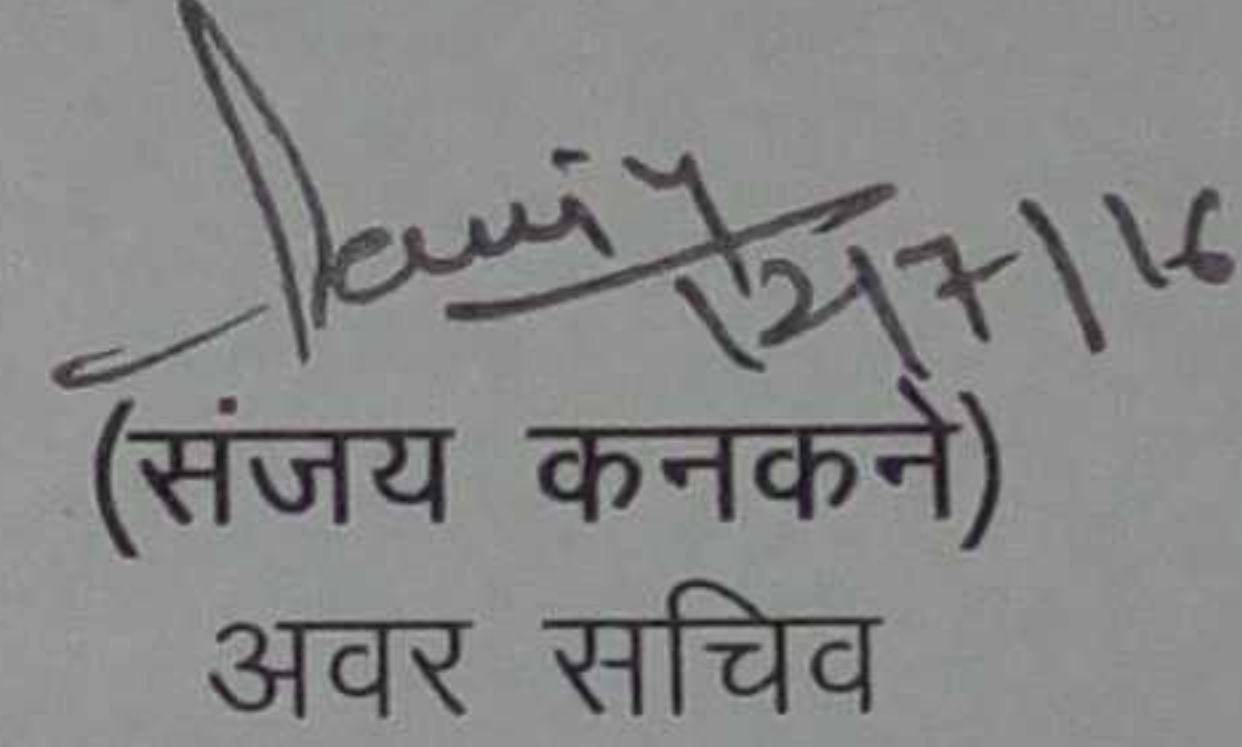 12/7/16
(संजय कनकने)
अवर सचिव